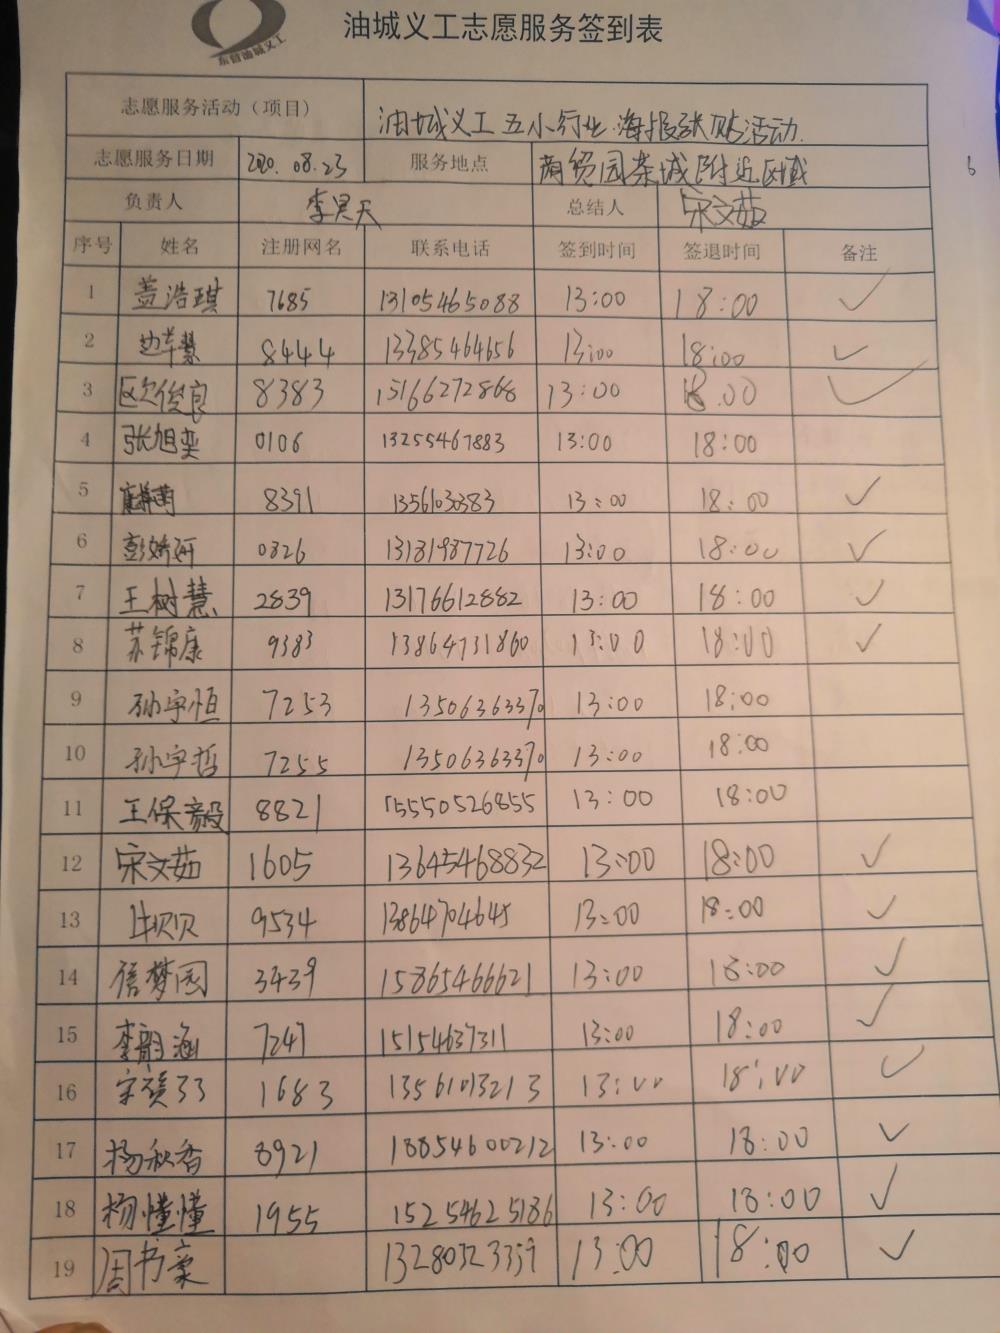 东营油城义工
油城义工志愿服务签到表
志愿服务活动（项目） 油城义工五小行业海报张贴活动.
志愿服务日期 2020.08.23 服务地点 商贸园茶城附近区域
6
负责人 李昊天 总结人 宋文茹
序号 姓名 注册网名 联系电话 签到时间 签退时间 备注
1 盖浩琪 7685 13105465088 13:00 18:00 ✓
2 8444 13385464656 13:00 18:00 ✓
3 区欠俊良 8383 15166272868 13:00 18.00 ✓
4 张旭栾 0106 13255467883 13:00 18:00
5 8391 13561030383 13:00 18:00 ✓
6 彭娇研 0326 13181987726 13:00 18:00 ✓
7 王树慧 2839 13176612882 13:00 18:00 ✓
8 苏锦康 9383 13864731860 13:00 18:00 ✓
9 孙宇恒 7253 13506363370 13:00 18:00
10 孙宇哲 7255 13506363370 13:00 18:00
11 王保毅 8821 15550526855 13:00 18:00
12 宋文茹 1605 13645468832 13:00 18:00 ✓
13 贝贝 9534 13864704645 13:00 18:00 ✓
14 信梦园 3439 15865466621 13:00 18:00 ✓
15 李韵涵 7247 15154637311 13:00 18:00 ✓
16 1683 13:00 18:00 ✓
17 杨秋香 8921 18854600212 13:00 18:00 ✓
18 杨懂懂 1955 15254625186 13:00 18:00 ✓
19 周书豪 13280323359 13:00 18:00 ✓